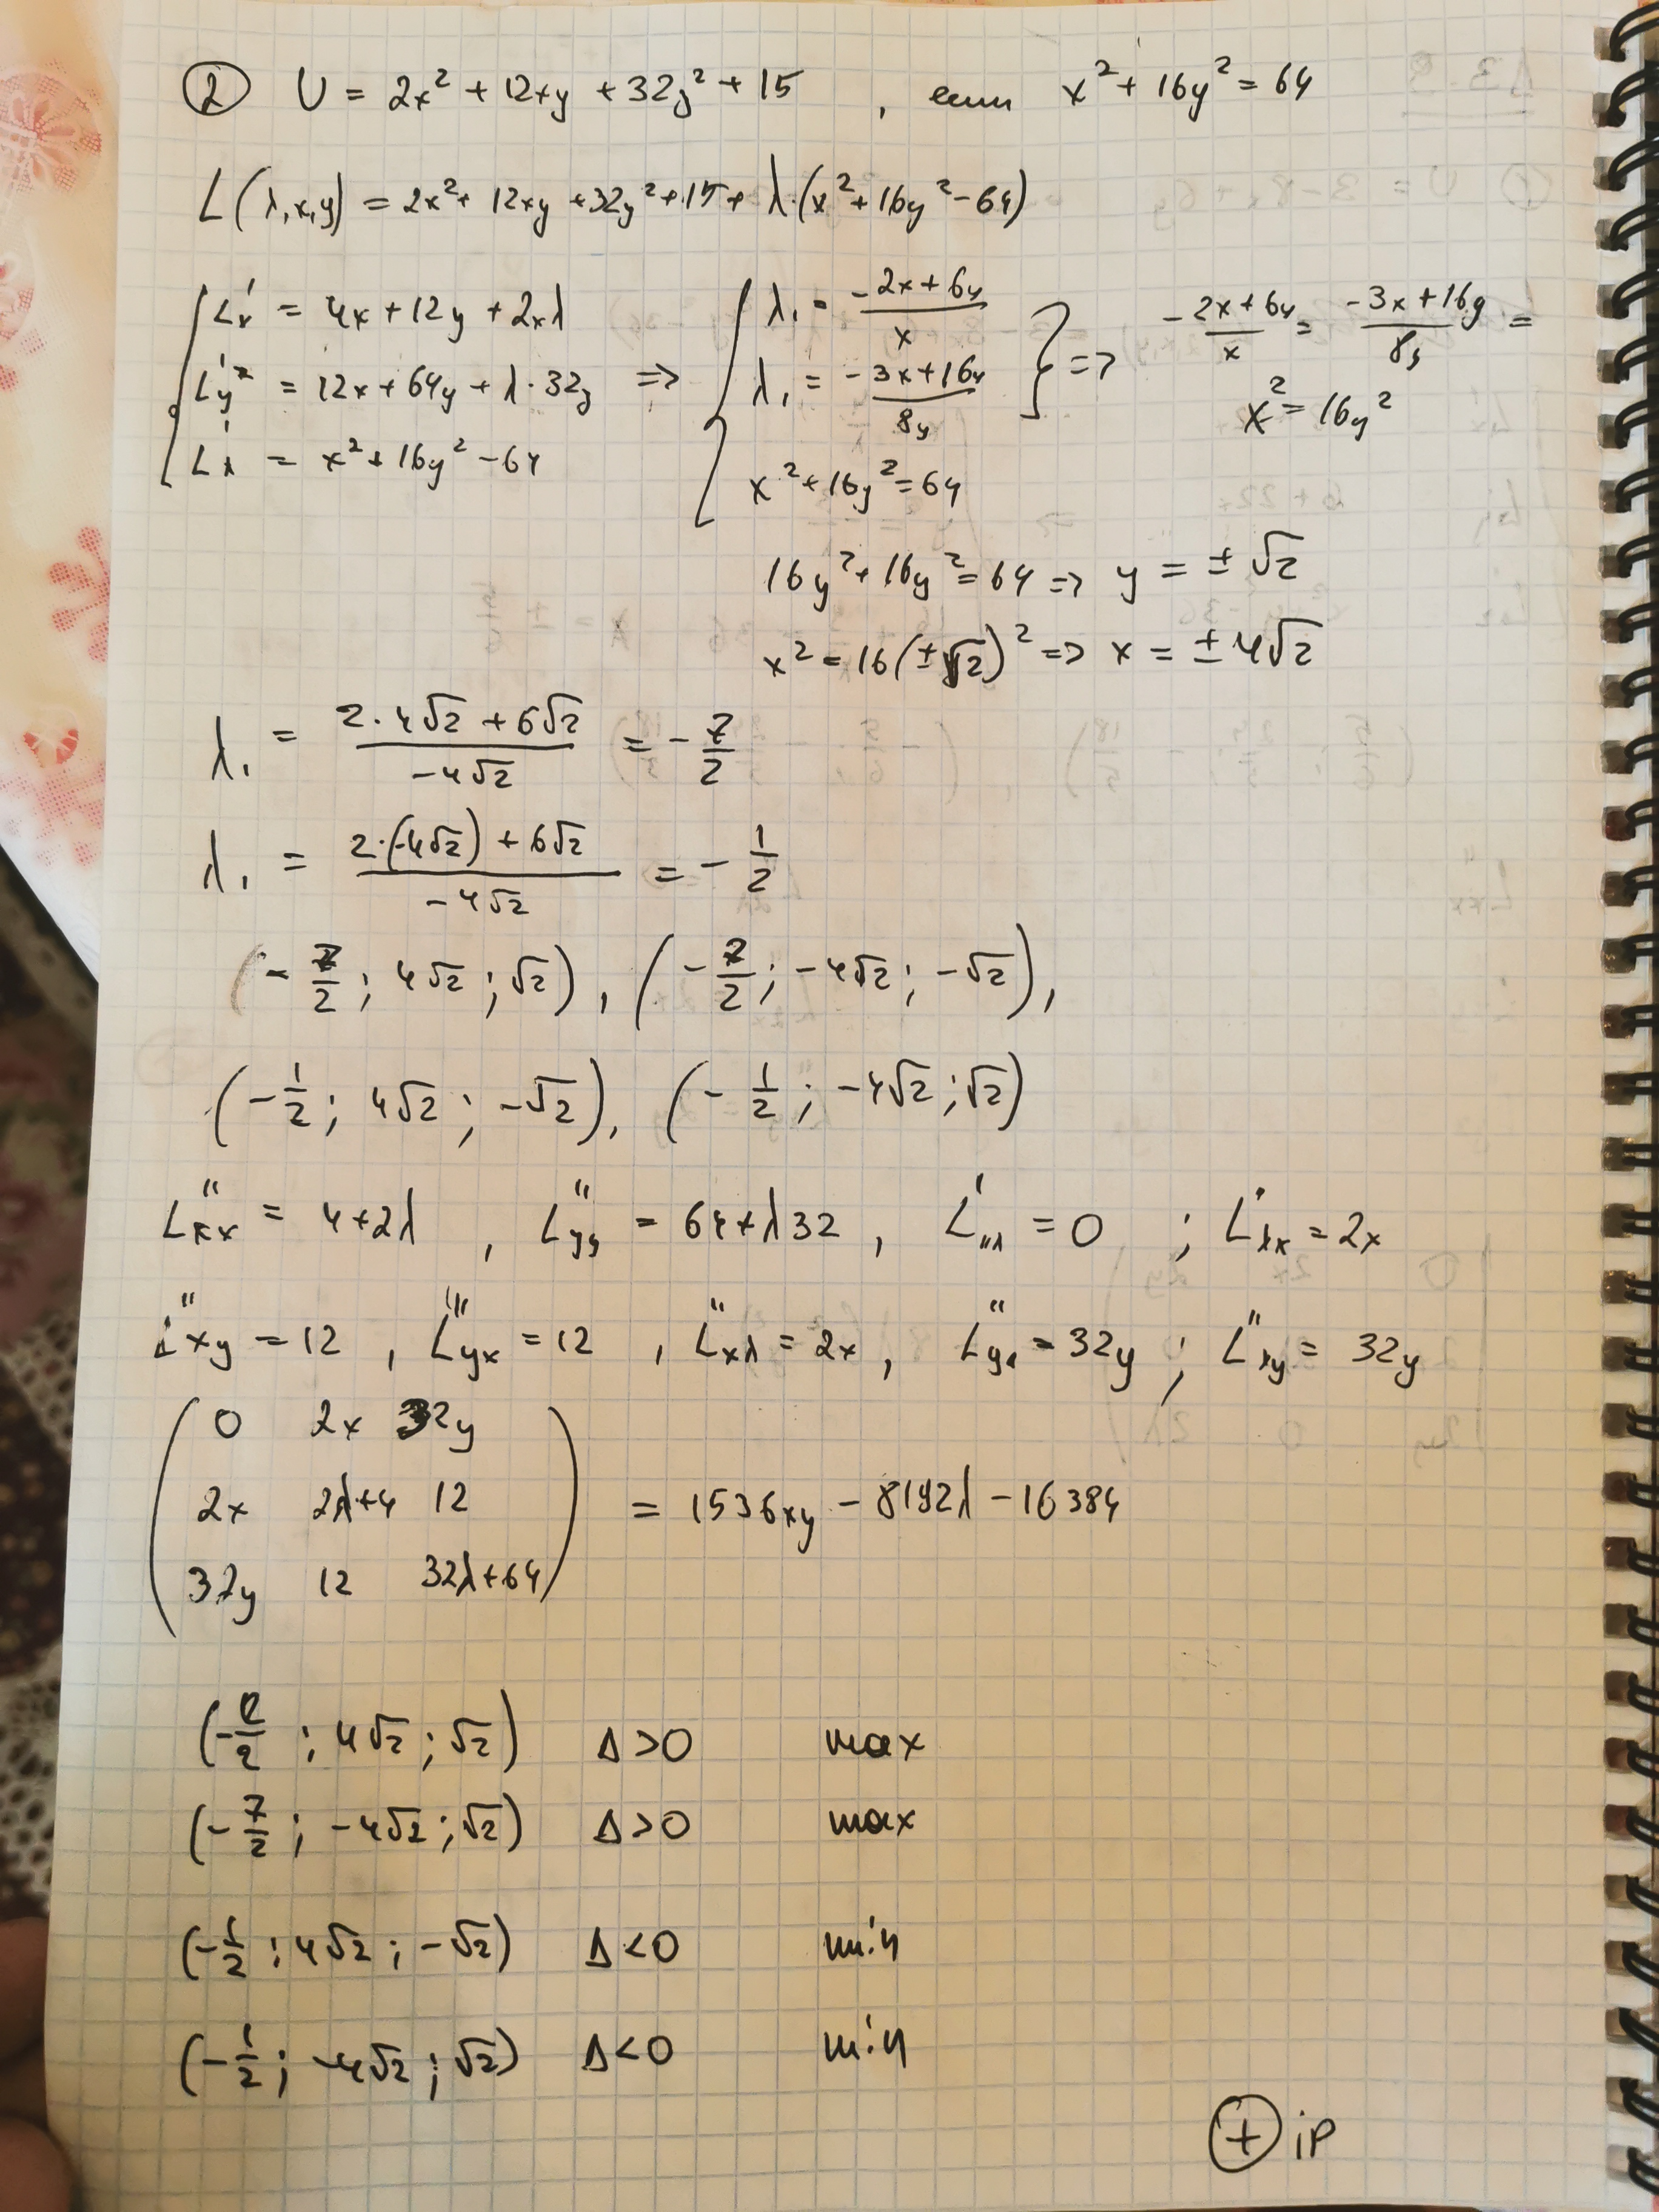 ② U = 2x² + 12xy + 32y² + 15 , если x² + 16y² = 64
L(λ,x,y) = 2x² + 12xy + 32y² + 15 + λ·(x² + 16y² - 64)
L'x = 4x + 12y + 2xλ
L'y = 12x + 64y + λ·32y =>
L'λ = x² + 16y² - 64
λ₁ = -(2x+6y)/x
λ₁ = -(3x+16y)/8y
x² + 16y² = 64
=> -(2x+6y)/x = -(3x+16y)/8y =
x² = 16y²
16y² + 16y² = 64 => y = ±√2
x² = 16(±√2)² => x = ±4√2
λ₁ = (2·4√2 + 6√2)/(-4√2) = -7/2
λ₁ = (2·(-4√2) + 6√2)/(-4√2) = -1/2
(-7/2; 4√2; √2), (-7/2; -4√2; -√2),
(-1/2; 4√2; -√2), (-1/2; -4√2; √2)
L''xx = 4+2λ , L''yy = 64+λ32 , L'λλ = 0 ; L'λx = 2x
L''xy = 12 , L''yx = 12 , L''xλ = 2x , L''yλ = 32y ; L''λy = 32y
0 2x 32y
2x 2λ+4 12 = 1536xy - 8192λ - 16384
32y 12 32λ+64
(-7/2 ; 4√2 ; √2) Δ>0 max
(-7/2 ; -4√2 ; √2) Δ>0 max
(-1/2 ; 4√2 ; -√2) Δ<0 min
(-1/2 ; -4√2 ; √2) Δ<0 min
⊕ ip